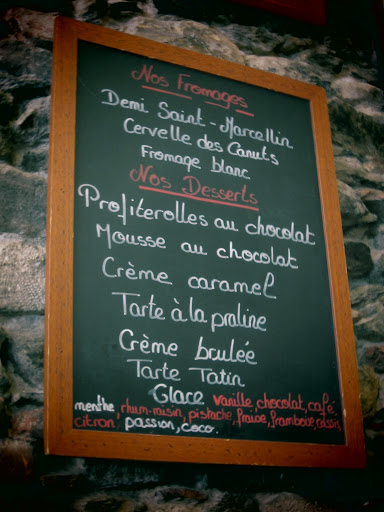 Nos Fromages
Demi Saint-Marcellin
Cervelle des Canuts
Fromage blanc
Nos Desserts
Profiterolles au chocolat
Mousse au chocolat
Crème caramel
Tarte à la praline
Crème brulée
Tarte Tatin
Glace vanille, chocolat, café
menthe, rhum-raisin, pistache, fraise, framboise, cassis
citron, passion, coco.